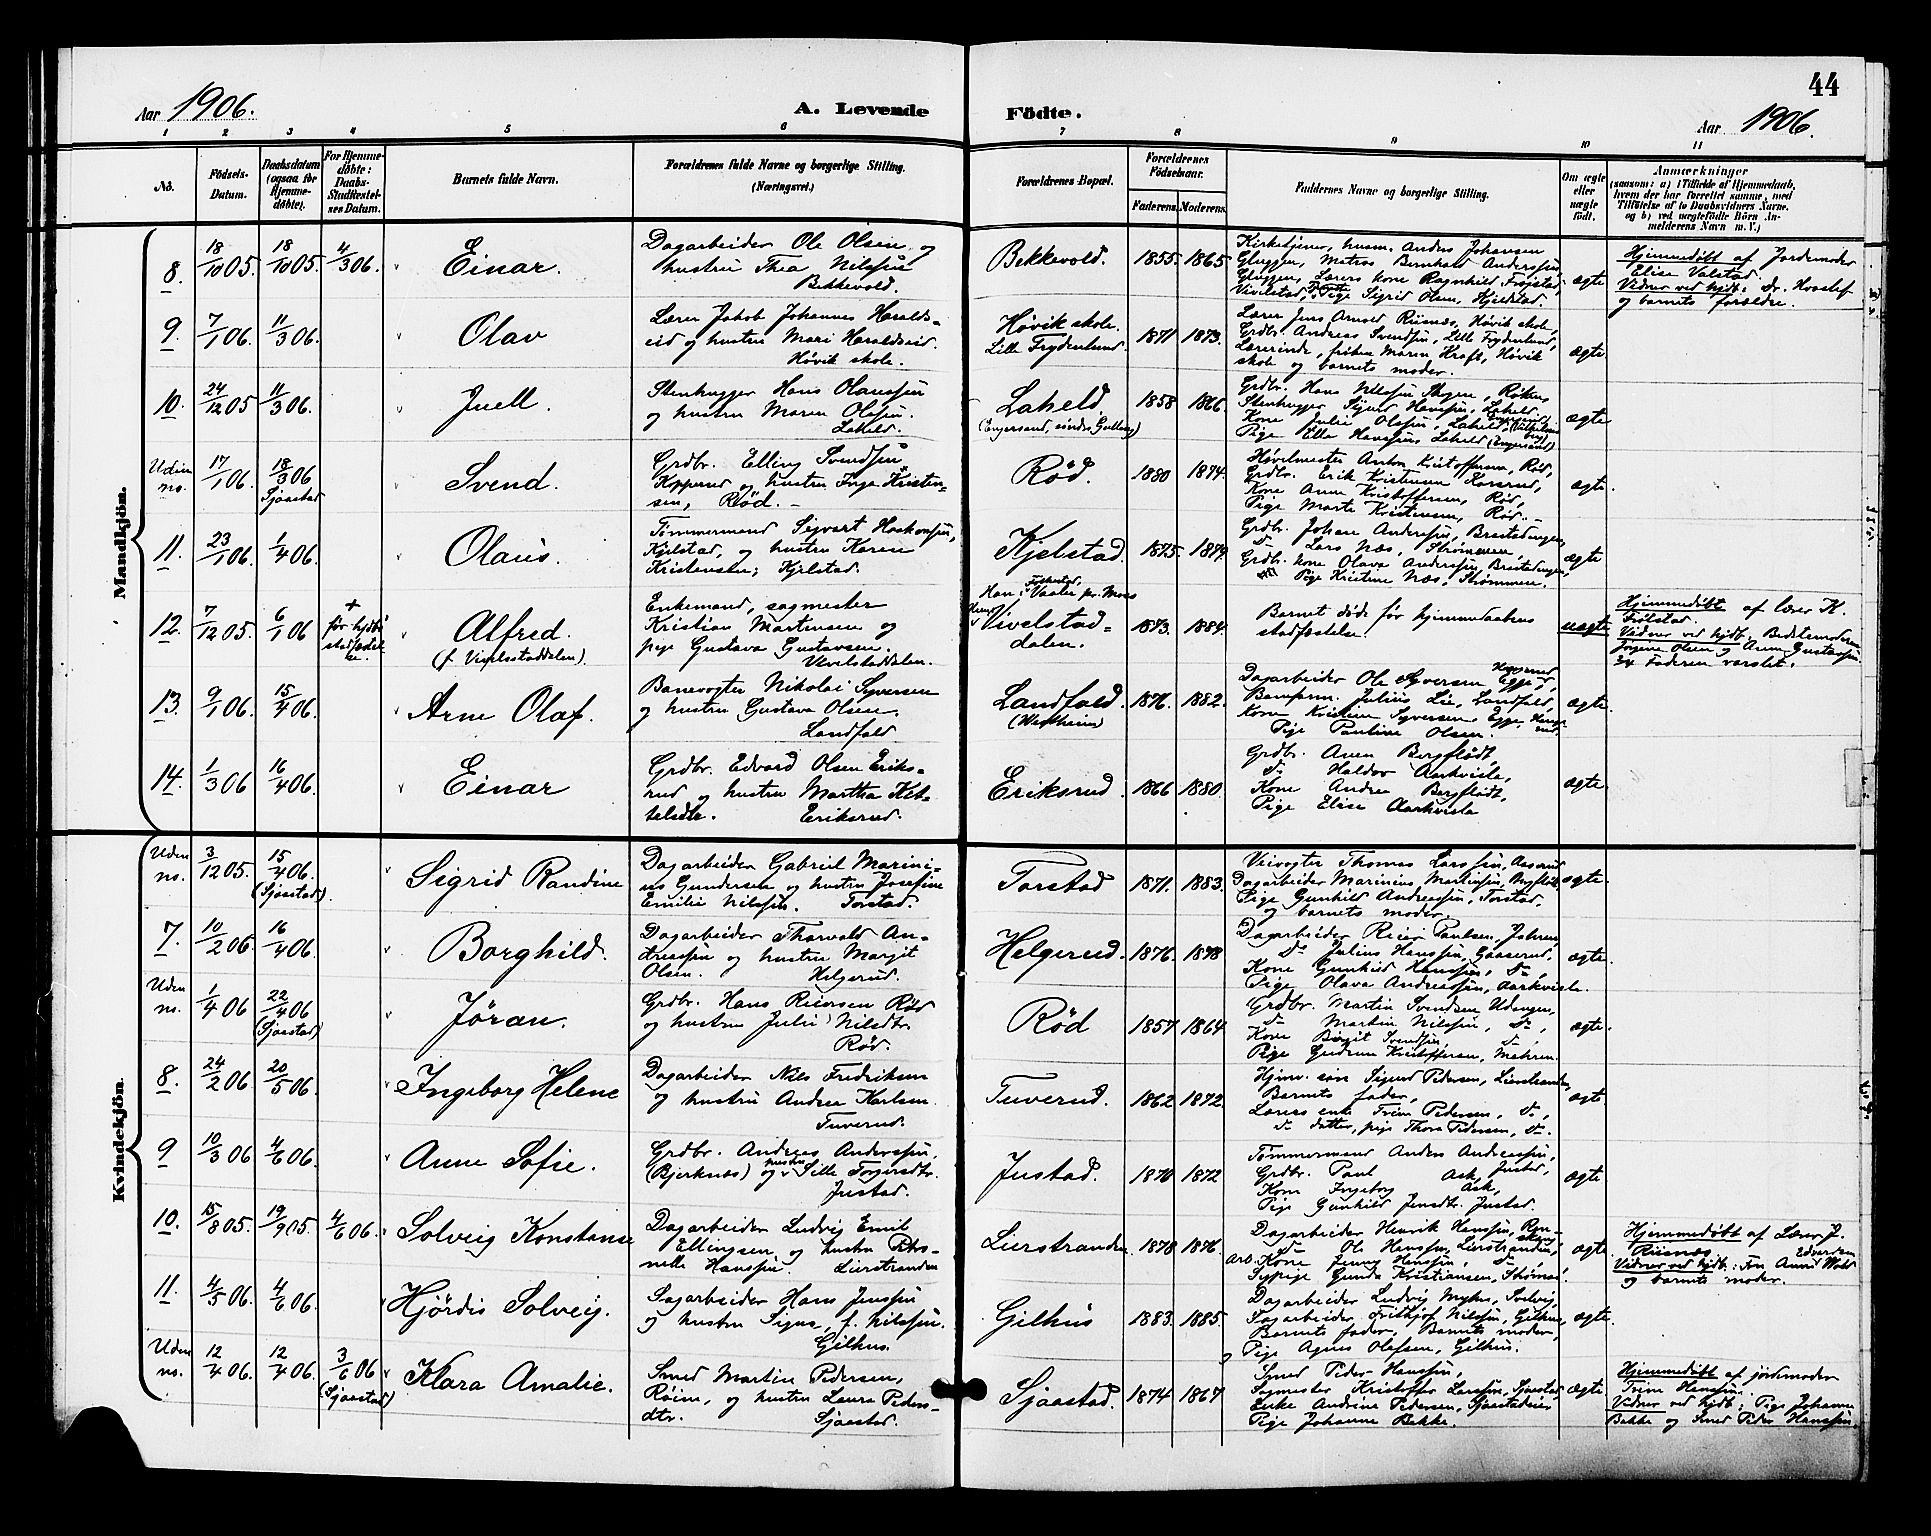 44
Aar 1906.
A. Levende
Födte.
Aar 1906.
1 2 3 4 5 6 7 8 9 10 11
No.
Födsels-Datum.
Daabsdatum (ogsaa for Hjemme-døbte).
For Hjemme-døbte: Daabs-Stadfæstel-ses Datum.
Barnets fulde Navn.
Forældrenes fulde Navne og borgerlige Stilling. (Næringsvei.)
Forældrenes Bopæl.
Forældrenes Födselsaar.
Faderens. Moderens.
Faddernes Navne og borgerlige Stilling.
Om ægte eller uægte födt.
Anmærkninger
(saasom: a) i Tilfælde af Hjemmedaab, hvem der har forrettet samme, med Tilföielse af to Daabsvidners Navne, og b) ved uægtefödte Börn Anmelderens Navn m. V.)
Mandkjön.
8. 18/10 05. 18/10 05. 4/3 06. Einar.
Dagarbeider Ole Olsen og
hustru Thea Nilssen
Bekkevold.
Bekkevold. 1855. 1865.
Kirketjener, husm. Anders Johansen
Gluggen, Matros Bernhald Anderssen,
Gluggen, Lærers kone Ragnhild Frøjstad,
Vivelstad, Pige Sigrid Olsen, Hjelstad.
ægte
Hjemmedøbt af Jordemoder
Elise Valstad.
Vidner ved hjdt: Dr.
og barnets forældre.
9. 7/1 06. 11/3 06. Olav
Lærer Jakob Johannes Haralds-
eid og hustru Mari Haraldseid.
Høvik skole.
Høvik skole.
Lille Frydenlund. 1871 1873.
Lærer Jens Arnold Riisnæs, Høvik skole,
Grdbr. Andreas Svendsen, Lille Frydenlund,
Lærerinde, frøken Maren Kraft, Høvik
skole og barnets moder.
ægte
10. 24/12 05 11/3 06. Juell.
Stenhugger Hans Olaussen
og hustru Maren Olsen.
Laheld.
Laheld. 1858 1866.
Grdbr. Hans Nilssen Røken,
Stenhugger Sigurd Hanssen, Laheld.
Kone Julie Olassen, Laheld,
Pige Ella Hanssens Laheld (Engersand)
ægte
Uden no. 17/1 06. 18/3 06 Sjaastad Svend.
Grdbr. Elling Svendsen
Kopperud og hustru Inga Kristen-
sen, Rød.
Rød. 1880 1874.
Høvelmester Anton Kristoffersen, Rød,
Grdbr. Erik Kristensen Korsrud,
Kone Anne Kristoffersen, Rød,
Pige Marte Kristensen, Rød.
ægte.
11. 23/1 06. 1/4 06. Olaus.
Tømmermand Sigvart Haakonsen,
Kjelstad, og hustru Karen
Kristensen; Kjelstad.
Kjelstad. 1875. 1879.
Grdbr. Johan Anderssen, Brastadengen,
d. Lars Næs, Strømmen,
Grdbr. kone Olava Anderssen, Brastadengen,
Pige Kristine Næs, Strømmen.
ægte
12. 7/12 05. 6/1 06 + før hjdbs stadfæstelse. Alfred.
(f. Vivelsstaddalen).
Enkemand, sagmester
Kristian Martinsen og
pige Gustava Gustavsen.
Vivilstaddalen.
Han: Vaaler pr. Moss
Hun: Vivelstad-
dalen. 1873. 1884.
Barnet døde før hjemmedaabens
stadfæstelse.
uægte
Hjemmedøbt af lærer K.
Frølstad.
Vidner ved hjdt. Bedstemoderen
Jørgine Olsen og Anna Gustavsen
Faderen varslet.
13. 9/1 06. 15/4 06. Arne Olaf.
Banevogter Nikolai Syversen
og hustru Gustava Olsen.
Landfald
Landfald. 1876. 1882.
(Westheim)
Dagarbeider Ole Syversen Egge,
Baneform. Julius Lie, Landfald,
Kone Kristine Syversen, Egge,
Pige Pauline Olsen.
ægte.
14. 1/3 06 16/4 06. Einar
Grdbr. Edvard Olsen Eriks-
rud og hustru Martha Ket-
telsdtr. Eriksrud.
Eriksrud. 1866 1880.
Grdbr. Aven Bergflødt,
d. Haldor Aarkvisla,
Kone Andrea Bergflødt,
Pige Elise Aarkvisla
ægte
Kvindekjön.
Uden no. 3/12 05. 15/4 06. (Sjaastad). Sigrid Randine
Dagarbeider Gabriel Marini-
us Gundersen og hustru Josefine
Emilie Nilssen. Torstad.
Torstad 1871. 1883.
Veivogter Thomas Larssen, Aaserud
Dagarbeider Marinius Martinsen, Bergflødt,
Pige Gunhild Andreassen, Torstad,
og barnets moder.
ægte.
7. 10/2 06. 16/4 06. Borghild.
Dagarbeider Thorvald An-
dreassen og hustru Margit
Olsen. Helgerud.
Helgerud. 1876. 1878
Dagarbeider Reier Paulsen, Jahren,
d. Julius Hanssen, Gaaserud,
Kone Gunhild Hanssen, d.,
Pige Olava Andreassen, Aarkvisla.
ægte.
Uden no. 1/4 06 22/4 06 (Sjaastad) Jøran.
Grdbr. Hans Reiersen Rød
og hustru Julie Nilsdtr.
Rød.
Rød 1857 1864
Grdbr. Martin Svendsen Udengen,
d. Martin Nilssen, d.,
Kone Birgit Svendsen, d.,
Pige Gudrun Kristoffersen, Mehren.
ægte.
8. 24/2 06 20/5 06. Ingeborg Helene
Dagarbeider Nils Fredriksen
og hustru Andrea Karlsen.
Tuverud.
Tuverud. 1862 1872.
Hjmv. søn Sigurd Pedersen, Lierstranden,
Barnets fader,
Lærers enke Trine Pedersen, d.,
d. datter, pige Thora Pedersen, d.
ægte
9 10/3 06 4/6 06. Anne Sofie.
Grdbr. Andreas Anderssen,
(Bjerknæs) og hustru Sille Torgersdtr.
Justad.
Justad. 1870 1872
Tømmermand Anders Andreassen,
Justad,
Grdbr. Paul Ask,
Kone Ingeborg Ask,
Pige Gunhild Jensdtr. Justad.
ægte
10. 15/8 05. 19/9 05. 4/6 06. Solveig Konstanse
Dagarbeider Ludvig Emil
Ellingsen og hustru Petro-
nelle Hanssen. Lierstranden
Lierstranden 1878 1876.
Dagarbeider Henrik Hanssen,
d. Ole Hanssen, Lierstranden,
Arb. Kone Jenny Hanssen, d.,
Sypige Gunda Kristiansen, Strømsø.
ægte
Hjemmedøbt af Lærer J.
Riisnæs.
Vidner ved hjdt: Fru Anna Edvardsen
og barnets moder.
11. 4/5 06. 4/6 06. Hjördis Solveig.
Dagarbeider Hans Jenssen
og hustru Signe, f. Nilssen.
Gilhus.
Gilhus 1883. 1885.
Dagarbeider Ludvig Myhre, Solvig,
Dagarbeider Frithjof Nilssen, Gilhus,
Barnets fader, Barnets moder,
og Pige Agnes Olafsen, Gilhus.
ægte.
Uden no. 12/4 06. 12/4 06. 3/6 06 (Sjaastad) Klara Amalie.
Smed Martin Pedersen,
Røine, og hustru Laura Peders-
dtr. Sjaastad.
Sjaastad. 1874 1867
Smed Peder Hanssen,
Sagmester Kristoffer Larssen, Sjaastad,
Enke Andrine Pedersen, Sjaastadeie,
Pige Johanne Bakke.
ægte
Hjemmedøbt af jordemoder
Trine Hanssen.
Vidner ved hjdt: Pige Johanne
Bakke og Smed Peder Hanssen.